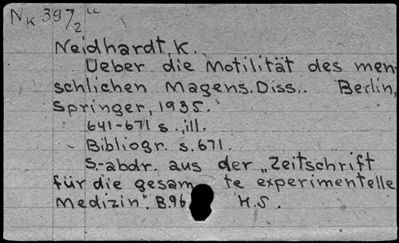 NK 397/2 u
Neidhardt, K.
Ueber die Motilität des men-
schlichen Magens. Diss.. Berlin,
Springer, 1935.
641-671 s., ill.
Bibliogr. s. 671.
S.-abdr. aus der „Zeitschrift
für die gesam te experimentelle
Medizin". B. 96 H. S.